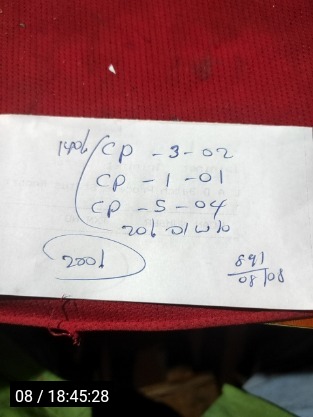 140/ CP - 3 - 02
CP - 1 - 01
CP - 5 - 04
200/
891
08/08
08 / 18:45:28